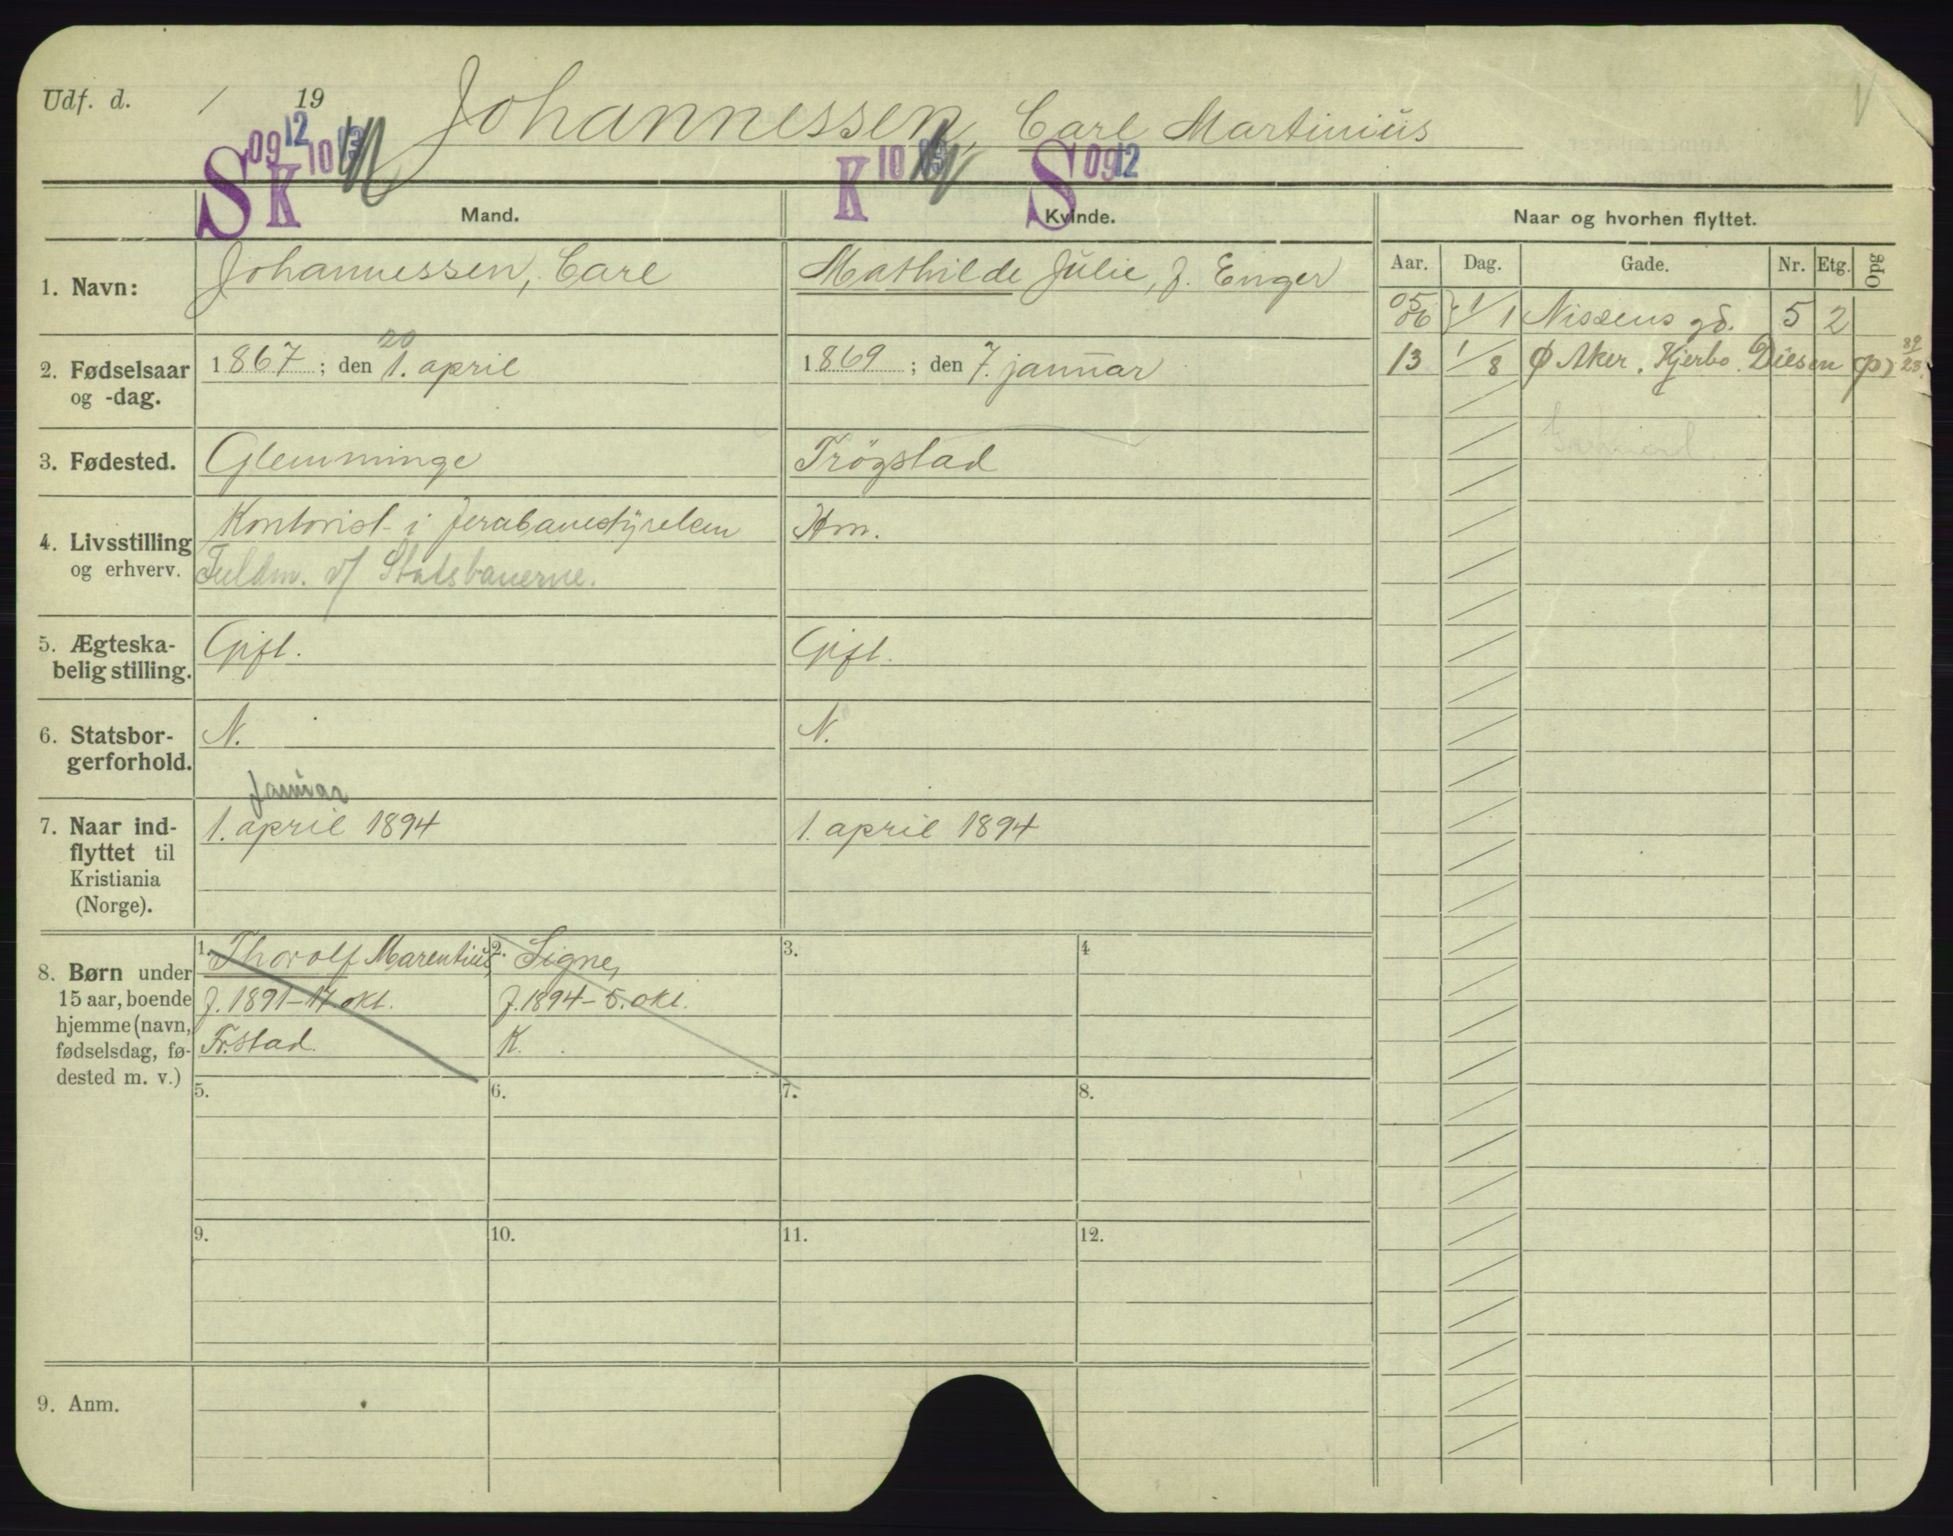 Udf. d. / 19
Johannessen, Carl Martinius
S 09 12 K 10 13
K 10 13 S 09 12
Mand. Kvinde. Naar og hvorhen flyttet.
Aar. Dag. Gade. Nr. Etg. Opg
1. Navn: Johannessen, Carl Mathilde Julie, f. Enger
05/06 } 1/1 Nissens gd. 5 2
13 1/8 Ø Aker. Hjerbo. Diesen 89/23
2. Fødselsaar og -dag. 1867; den 1. april 1869; den 7. januar
20
3. Fødested. Glemminge Trögstad
4. Livsstilling og erhverv. Kontorist i Jernbanestyrelsen Hm.
Fuldm. v/ Statsbanerne.
5. Ægteska-
belig stilling. Gift. Gift.
6. Statsbor-
gerforhold. N. N.
Januar
7. Naar ind-
flyttet til
Kristiania
(Norge). 1. april 1894 1. april 1894
8. Børn under
15 aar, boende
hjemme (navn,
fødselsdag, fø-
dested m. v.)
1. Thorolf Marentius,
f. 1891-17 okt.
Fr.stad.
2. Signe,
f. 1894-5. okt.
K.
3.
4
5.
6.
7.
8.
9.
10.
11.
12.
9. Anm.